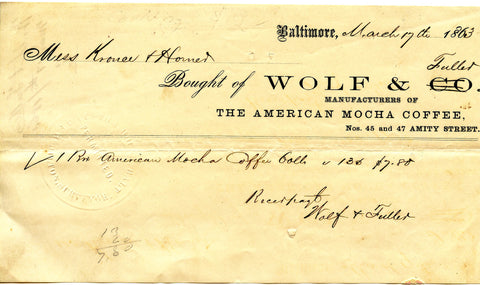 Baltimore, March 17th 1863
Mess Kroner & Horner
Fuller
Bought of WOLF & CO.
MANUFACTURERS OF
THE AMERICAN MOCHA COFFEE,
Nos. 45 and 47 AMITY STREET.
1 Bx American Mocha Coffee lbs 13c $7.80
Received payt
Wolf & Fuller
13
7.80